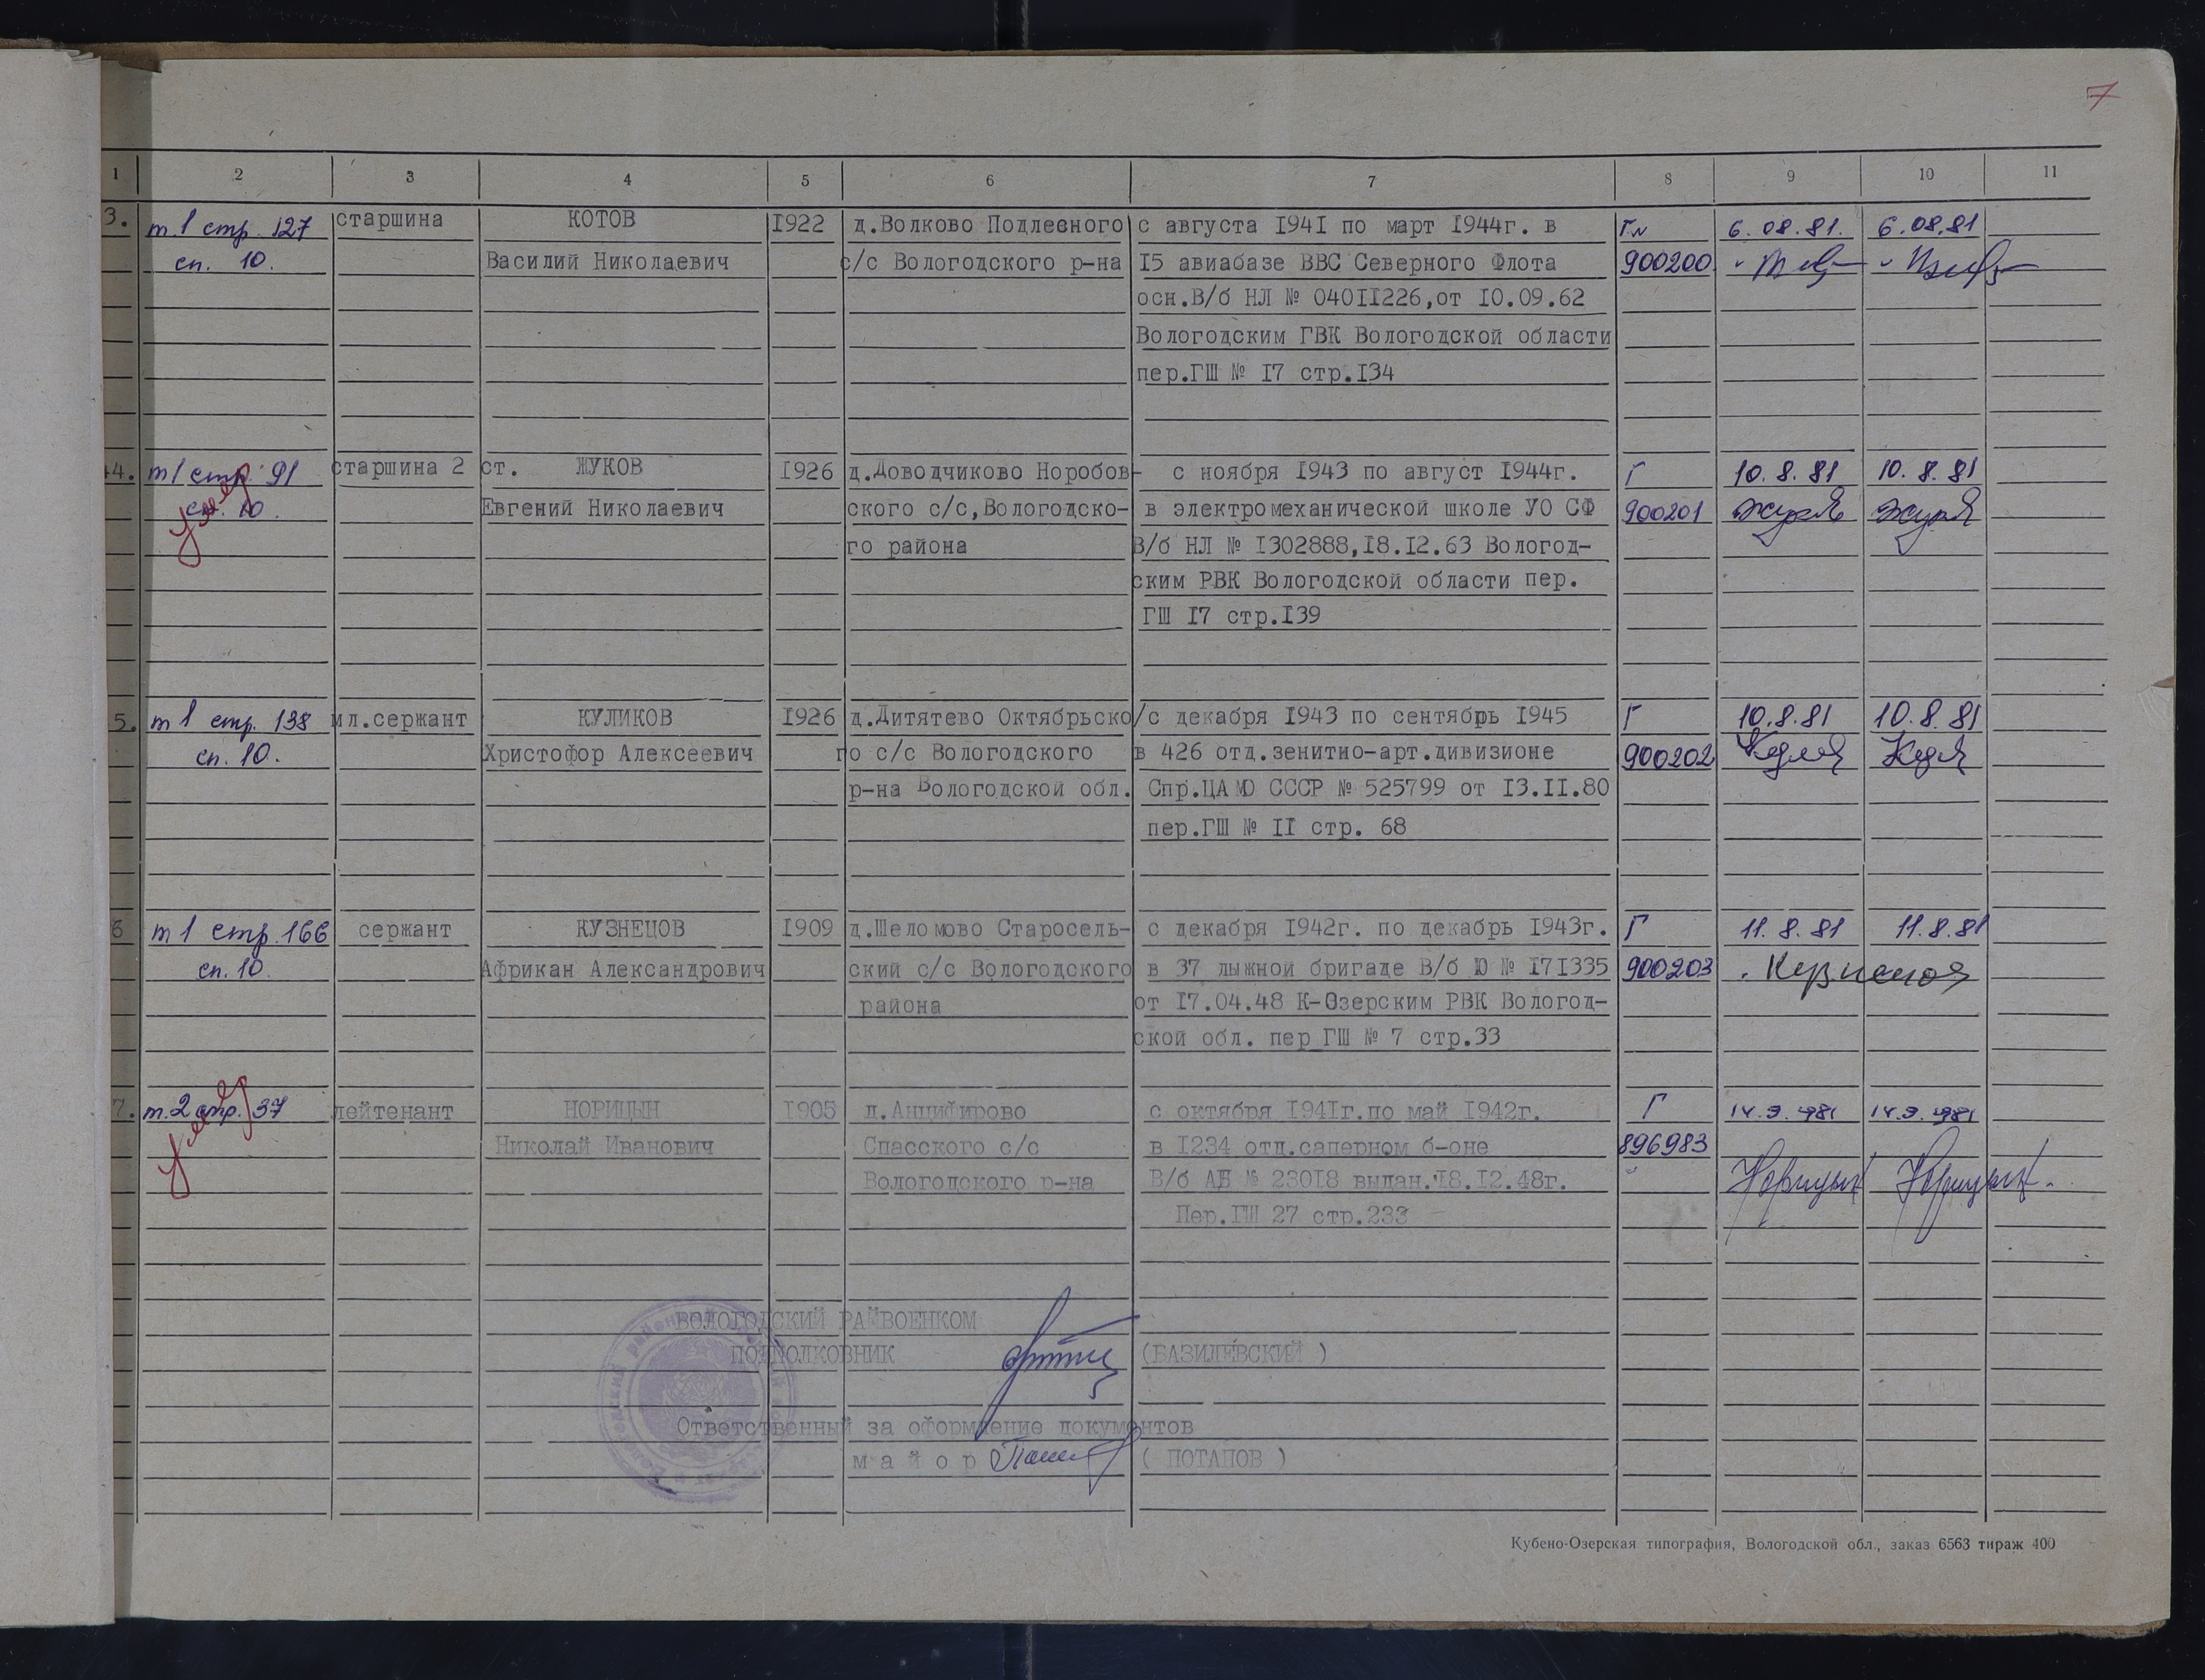 7
1 2 3 4 5 6 7 8 9 10 11
3. т.1 стр. 127 старшина КОТОВ 1922 д.Волково Подлесного с августа 1941 по март 1944г. в 6.08.81. 6.08.81
сп. 10. Василий Николаевич с/с Вологодского р-на 15 авиабазе ВВС Северного Флота 900200
осн.В/б НЛ № 04011226,от 10.09.62
Вологодским ГВК Вологодской области
пер.ГШ № 17 стр.134
4. т1 стр. 91 старшина 2 ст. ЖУКОВ 1926 д.Доводчиково Норобов- с ноября 1943 по август 1944г. Г 10.8.81 10.8.81
сп. 10. Евгений Николаевич ского с/с,Вологодско- в электромеханической школе УО СФ 900201
го района В/б НЛ № 1302888,18.12.63 Вологод-
ским РВК Вологодской области пер.
ГШ 17 стр.139
5. т1 стр. 138 мл.сержант КУЛИКОВ 1926 д.Дитятево Октябрьско/с декабря 1943 по сентябрь 1945 Г 10.8.81 10.8.81
сп. 10. Христофор Алексеевич го с/с Вологодского в 426 отд.зенитно-арт.дивизионе 900202
р-на Вологодской обл. Спр.ЦАМО СССР № 525799 от 13.11.80
пер.ГШ № 11 стр. 68
6 т1 стр.166 сержант КУЗНЕЦОВ 1909 д.Шеломово Старосель- с декабря 1942г. по декабрь 1943г. Г 11.8.81 11.8.81
сп.10. Африкан Александрович ский с/с Вологодского в 37 лыжной бригаде В/б Ю № 171335 900203
района от 17.04.48 К-Озерским РВК Вологод-
ской обл. пер ГШ № 7 стр.33
7. т.2 стр. 37 лейтенант НОРИЦЫН 1905 д.Анцифирово с октября 1941г.по май 1942г. Г 14.9.1981 14.9.1981
Николай Иванович Спасского с/с в 1234 отд.саперном б-оне 896983
Вологодского р-на В/б АБ № 23018 выдан.18.12.48г.
Пер.ГШ 27 стр.233
ВОЛОГОДСКИЙ РАЙВОЕНКОМ
ПОДПОЛКОВНИК (БАЗИЛЕВСКИЙ )
Ответственный за оформление документов
м а й о р ( ПОТАПОВ )
Кубено-Озерская типография, Вологодской обл., заказ 6563 тираж 400